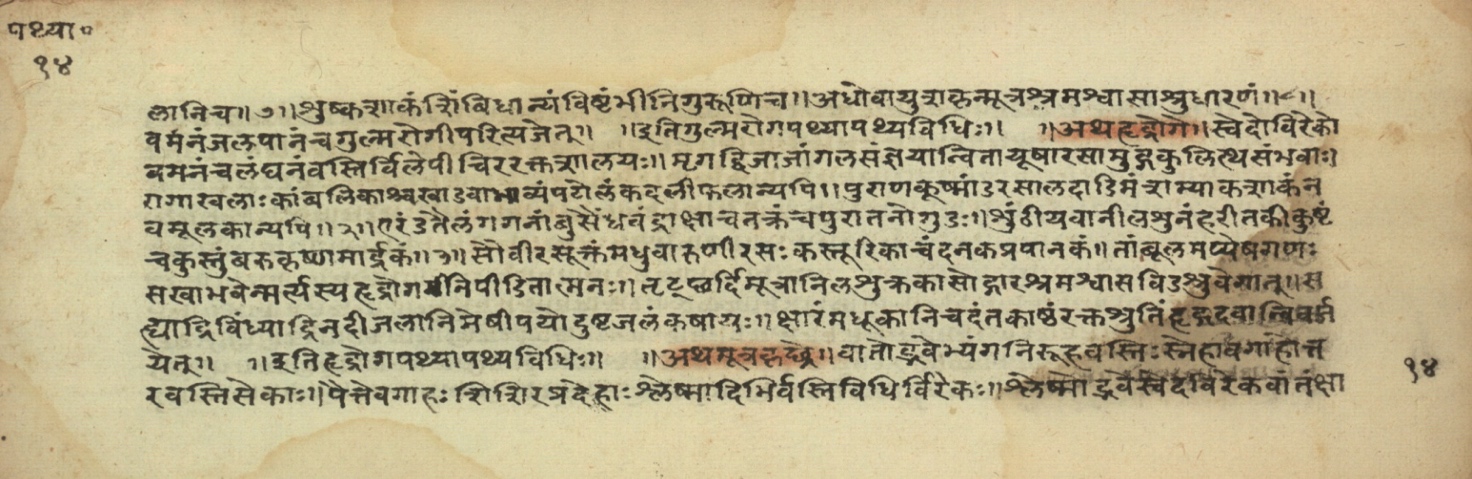 पथ्या॰
१४
लानिच॥७॥शुष्कशाकंशिंबिधान्यंविष्टंभीनिगुरूणिच॥अधोवायुशकृन्मूत्रश्रमश्वासाश्रुधारणं॥८॥
वमनंजलपानंचगुल्मरोगीपरित्यजेत्॥ ॥इतिगुल्मरोगपथ्यापथ्यविधिः॥ ॥अथहृद्रोगे॥स्वेदोविरेको
वमनंचलंघनंवस्तिर्विलेपीचिररक्तशालयः॥मृगद्विजाजांगलसंज्ञयान्वितायूषारसामुद्गकुलित्थसंभवाः॥
रागाखलाःकांबलिकाश्चखाडवाभव्यंपटोलंकदलीफलान्यपि॥पुराणकूष्मांडरसालदाडिमंशम्याकशाकंन
वमूलकान्यपि॥२॥एरंडतैलंगगनांबुसैंधवंद्राक्षाचतक्रंचपुरातनोगुडः॥शुंठीयवानीलशुनंहरीतकीकुष्टं
चकुस्तुंबरुकृष्णमार्द्रकं॥३॥सौवीरसूक्तंमधुवारुणीरसःकस्तूरिकाचंदनकप्रपानकं॥तांबूलमप्येषगणः
सखाभवेन्मर्त्यस्यहृद्रोगनिपीडितात्मनः॥तृट्छर्दिमूत्रानिलशुक्रकासोद्गारश्रमश्वासविडश्रुवेगान्॥स
ह्याद्रिविंध्याद्रिनदीजलानिमेषीपयोदुष्टजलंकषायः॥क्षारंमधूकानिचदंतकाष्ठंरक्तश्रुतिंहृद्गदवान्विवर्ज
येत्॥ ॥इतिहृद्रोगपथ्यापथ्यविधिः॥ ॥अथमूत्रकृछ्रे॥वातोद्भवेभ्यंगनिरूहवस्तिःस्नेहावगाहोत्त
रवस्तिसेकाः॥पैत्तेवगाहःशिशिरप्रदेहाःश्लेष्मादिभिर्वस्तिविधिर्विरेकः॥श्लेष्मोद्भवेस्वेदविरेकवांतंक्षा
१४